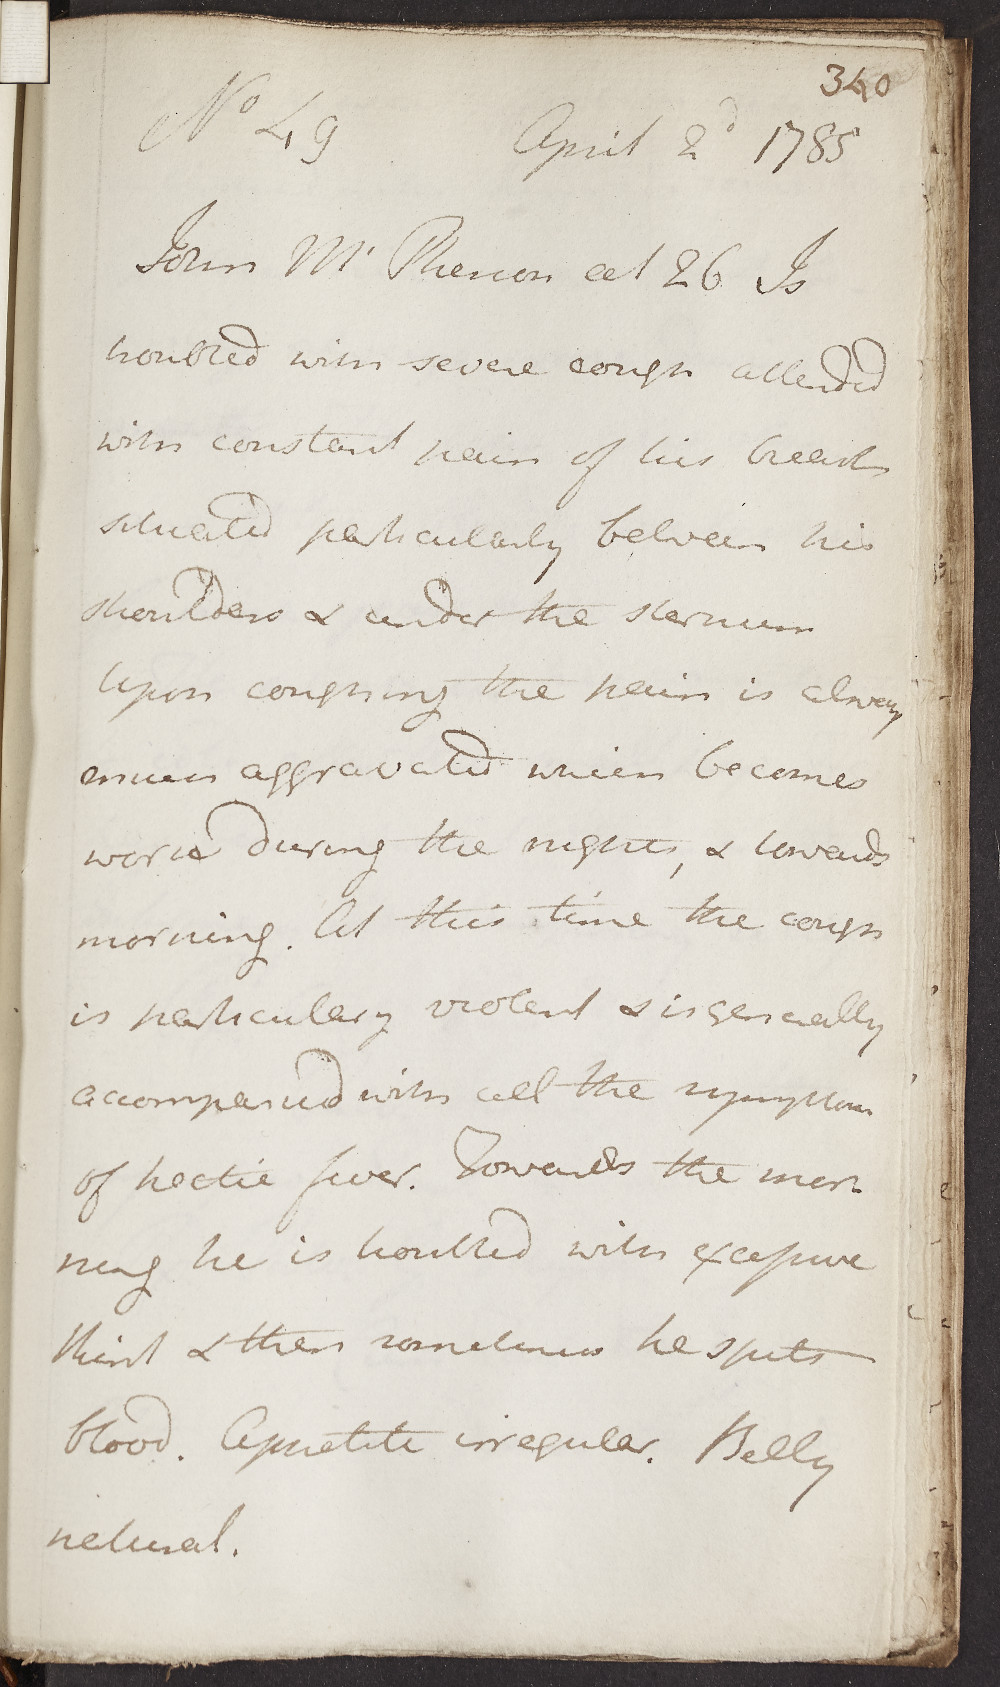 340
No 49 April 2d 1785
John Mc Pherson aet 26 Is
troubled with severe cough attended
with constant pain of his breast
situated particularly between his
shoulders & under the sternum
Upon coughing the pain is always
much aggravated which becomes
worse during the nights, & towards
morning. At this time the cough
is particulary violent & is generally
accompanied with all the symptoms
of hectic fever. Towards the mor
ning he is troubled with excessive
thirst & then sometimes he spits
blood. Appetite irregular. Belly
natural.